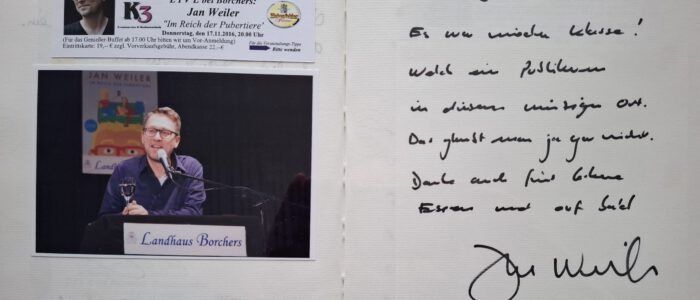 LIVE bei Borchers:
Jan Weiler
"Im Reich der Pubertiere"
Donnerstag, den 17.11.2016, 20.00 Uhr
K3
(Für das Genießer-Buffet ab 17.00 Uhr bitten wir um Vor-Anmeldung)
Eintrittskarte: 19,– € zzgl. Vorverkaufsgebühr, Abendkasse 22,– €
Für die Veranstaltungs-Tipps
Bitte wenden
JAN WEILER
Landhaus
Landhaus Borchers
Es war Klasse!
Welch ein Publikum
in diesem winzigen Ort.
Das glaubt man ja gar nicht.
Danke auch fürs
Essen und auf bald
Jan Weiler